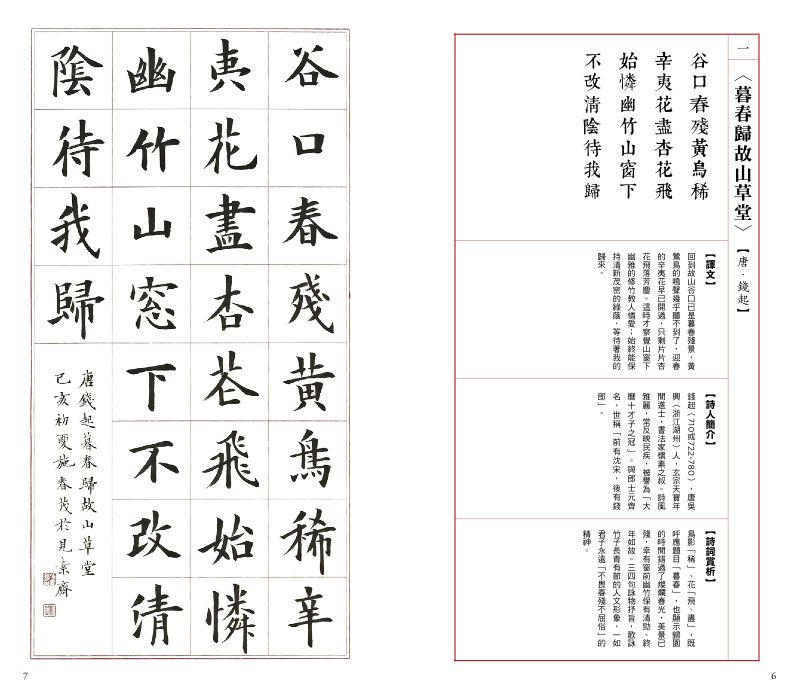 一
〈暮春歸故山草堂〉
【唐．錢起】
谷口春殘黃鳥稀
辛夷花盡杏花飛
始憐幽竹山窗下
不改清陰待我歸
【譯文】
回到故山谷口已是暮春殘景，黃
鶯鳥的鳴聲幾乎聽不到了，迎春
的辛夷花早已開過，只剩片片杏
花飛落芳塵。這時才察覺山窗下
幽雅的修竹教人憐愛；始終能保
持清新茂密的綠蔭，等待著我的
歸來。
【詩人簡介】
錢起（710或722-780），唐吳
興（浙江湖州）人，玄宗天寶年
間進士，書法家懷素之叔。詩風
雅麗，常反映民疾，被譽為「大
曆十才子之冠」。與郎士元齊
名，世稱「前有沈宋，後有錢
郎」。
【詩詞賞析】
鳥影「稀」、花「飛、盡」，既
呼應題目「暮春」，也顯示歸園
的時間錯過了燦爛春光，美景已
殘，幸有窗前幽竹保有清勁、終
年如故。三四句詠物抒旨，歌詠
竹子長青有節的人文形象，一如
君子永遠「不畏春殘不屈俗」的
精神。
6
谷口春殘黃鳥稀辛
夷花盡杏花飛始憐
幽竹山窓下不改清
陰待我歸
唐錢起暮春歸故山草堂
己亥初夏施春茂於見素齋
7